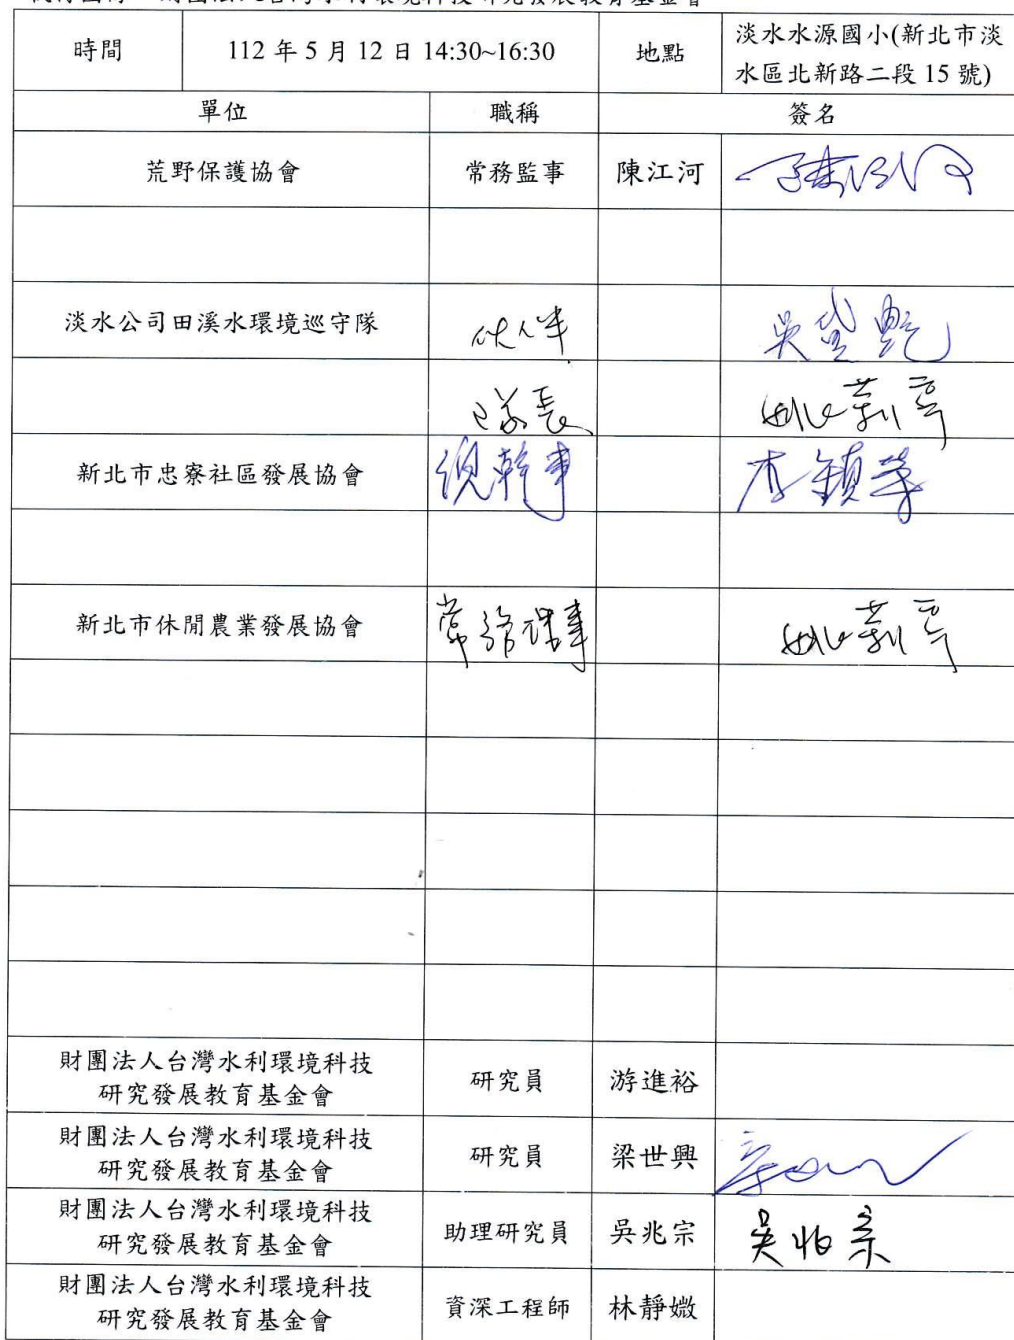 時間 112 年 5 月 12 日 14:30~16:30 地點 淡水水源國小(新北市淡
水區北新路二段 15 號)
單位 職稱 簽名
荒野保護協會 常務監事 陳江河 陳江河
淡水公司田溪水環境巡守隊 吳
隊長 姚莉亭
新北市忠寮社區發展協會 總幹事 李鎮榮
新北市休閒農業發展協會 常務理事 姚莉亭
財團法人台灣水利環境科技
研究發展教育基金會 研究員 游進裕
財團法人台灣水利環境科技
研究發展教育基金會 研究員 梁世興
財團法人台灣水利環境科技
研究發展教育基金會 助理研究員 吳兆宗 吳兆宗
財團法人台灣水利環境科技
研究發展教育基金會 資深工程師 林靜媺